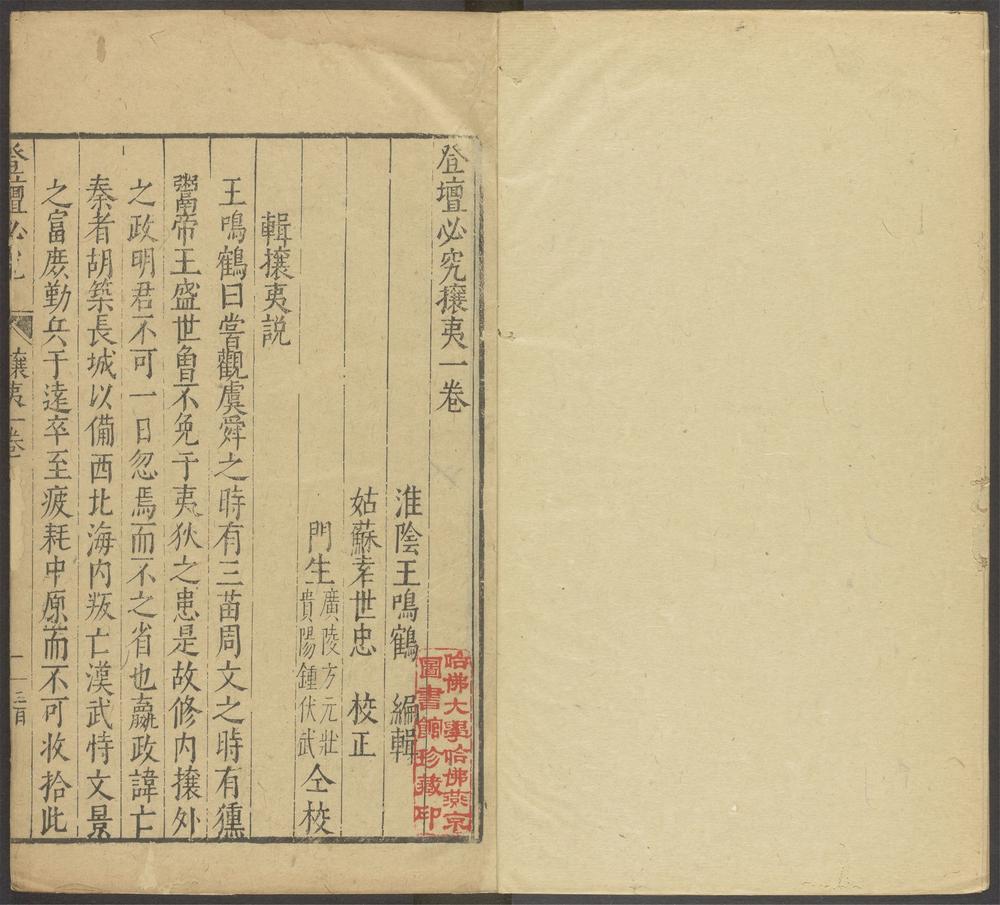 登壇必究攘夷一卷
淮陰王鳴鶴 編輯
姑蘇李世忠 校正
門生廣陵方元壯貴陽鍾伏武仝校
輯攘夷説
王鳴鶴曰嘗觀虞舜之時有三苗周文之時有獯
鬻帝王盛世魯不免于夷狄之患是故修內攘外
之政明君不可一日忽焉而不之省也嬴政諱亡
秦者胡築長城以備西北海內叛亡漢武恃文景
之富庶勤兵于遠卒至疲耗中原而不可收拾此
登壇必究 攘夷一卷 一
哈佛大學哈佛燕京
圖書館珍藏印